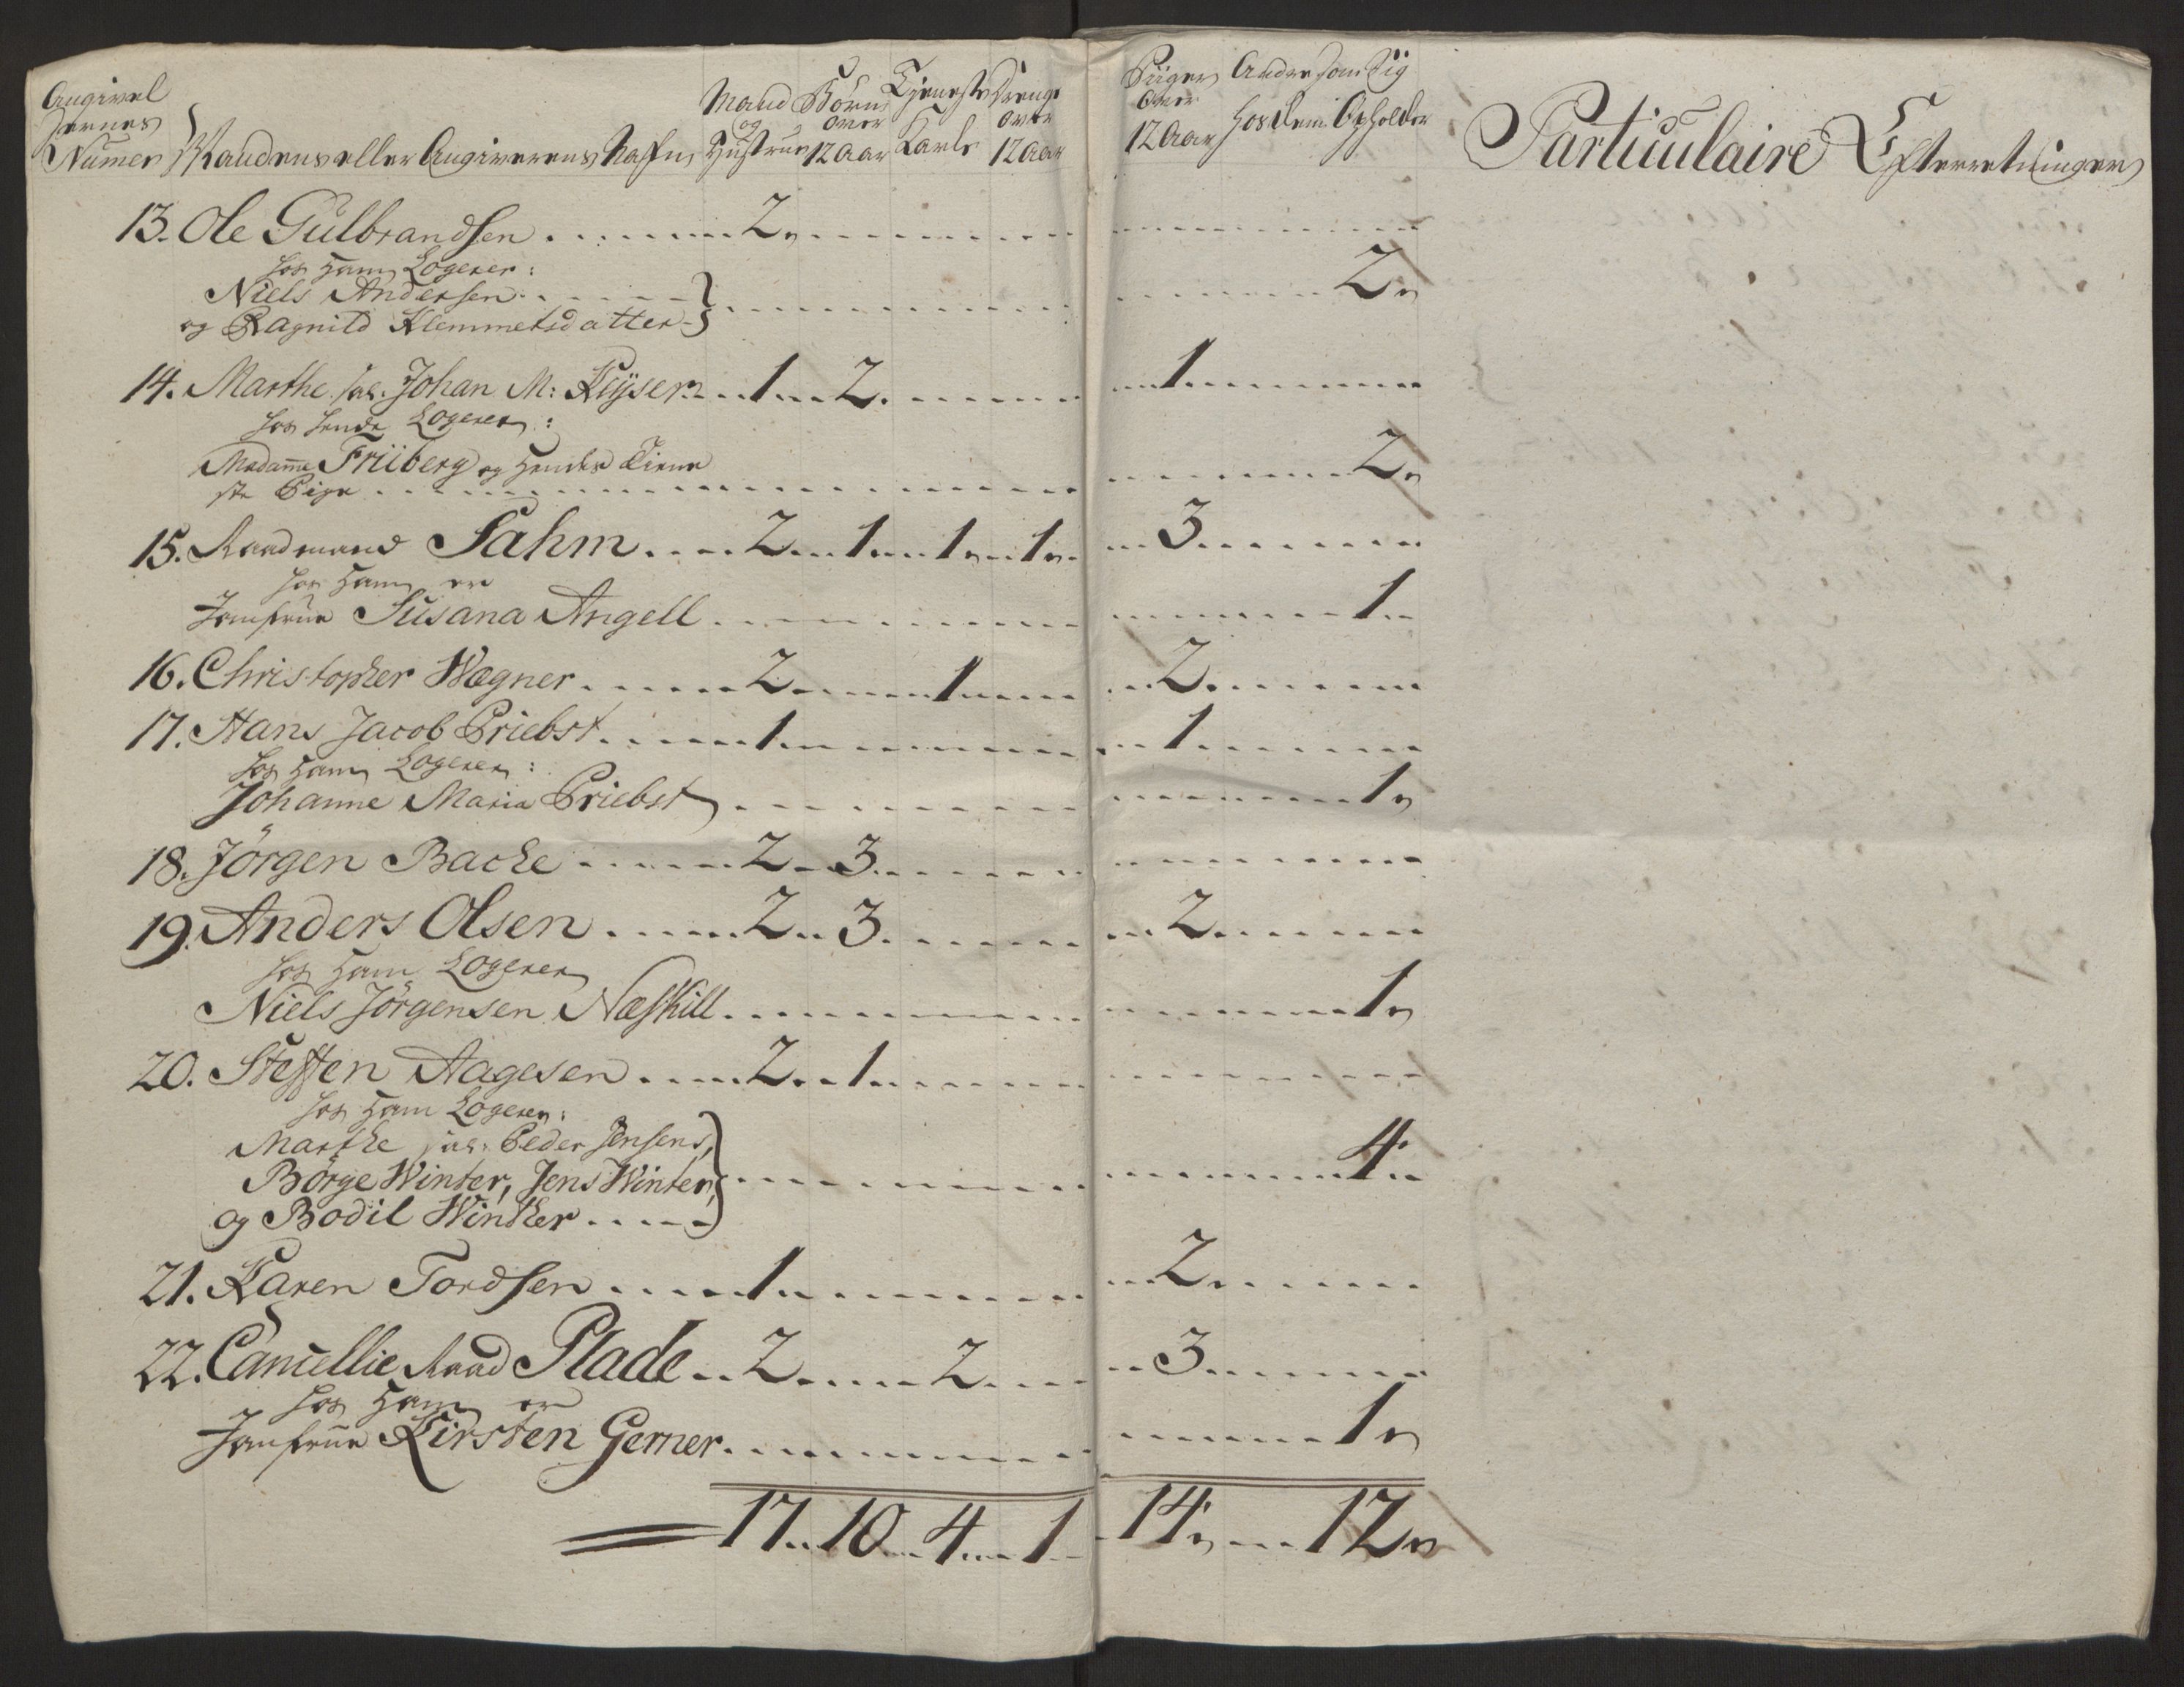 Angivel
sernes
Numer Mandens eller Angiverens Nafn
Mand og Hustrue
Börn over 12 Aar
Tieneste Karle
Drenge over 12 Aar
Piiger over 12 Aar
Andre som Sig hos dem Opholder
Particulaire Efterretninger
13. Ole Gulbrandsen 2
hos Ham Logerer:
Niels Andersen
og Ragnild Klemmetsdatter 2
14. Marthe sal. Johan M: Keyser 1 2 1
hos hende Logerer:
Madame Friiberg og Hendes Tiene
ste Pige 2
15. Raadmand Sahm 2 1 1 1 3
hos Ham er
Jomfrue Susana Angell 1
16. Christopher Wægner 2 1 2
17. Hans Jacob Priebst 1 1
hos Ham Logerer:
Johanne Maria Priebst 1
18. Jörgen Backe 2 3
19. Anders Olsen 2 3 2
hos Ham Logerer
Niels Jörgensen Næskill 1
20. Steffen Aagesen 2 1
hos Ham Logerer:
Marthe sal. Peder Jensens,
Börge Winter, Jens Winter,
og Bodil Winther 4
21. Karen Tordsen 1 2
22. Cancellie Raad Plade 2 2 3
hos Ham er
Jomfrue Kirsten Gerner 1
17 10 4 1 14 12